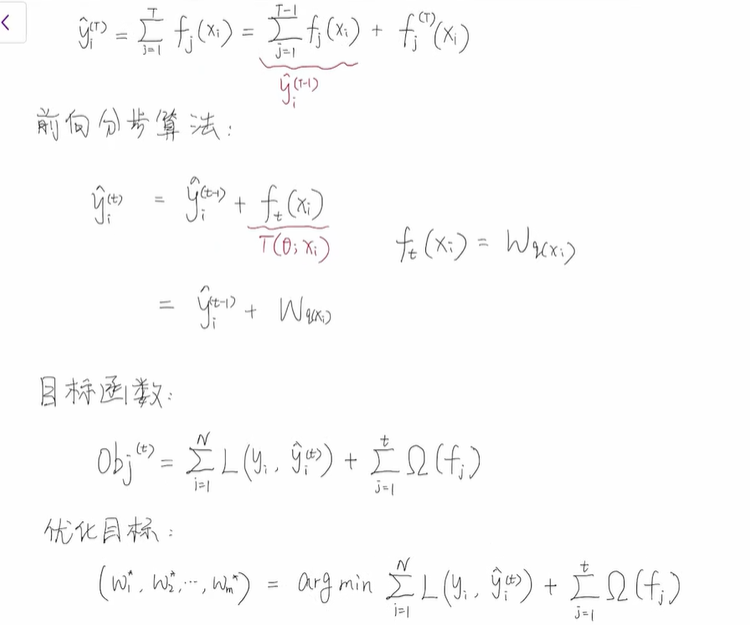 ŷᵢ⁽ᵀ⁾ = Σⱼ₌₁ᵀ fⱼ(xᵢ) = Σⱼ₌₁ᵀ⁻¹ fⱼ(xᵢ) + fⱼ⁽ᵀ⁾(xᵢ)
ŷᵢ⁽ᵀ⁻¹⁾
前向分步算法:
ŷᵢ⁽ᵗ⁾ = ŷᵢ⁽ᵗ⁻¹⁾ + fₜ(xᵢ)
T(θ; xᵢ)
fₜ(xᵢ) = W_q(xᵢ)
= ŷᵢ⁽ᵗ⁻¹⁾ + W_q(xᵢ)
目标函数:
Obj⁽ᵗ⁾ = Σᵢ₌₁ᴺ L(yᵢ, ŷᵢ⁽ᵗ⁾) + Σⱼ₌₁ᵗ Ω(fⱼ)
优化目标:
(w₁*, w₂*, ⋯, wₘ*) = arg min Σᵢ₌₁ᴺ L(yᵢ, ŷᵢ⁽ᵗ⁾) + Σⱼ₌₁ᵗ Ω(fⱼ)